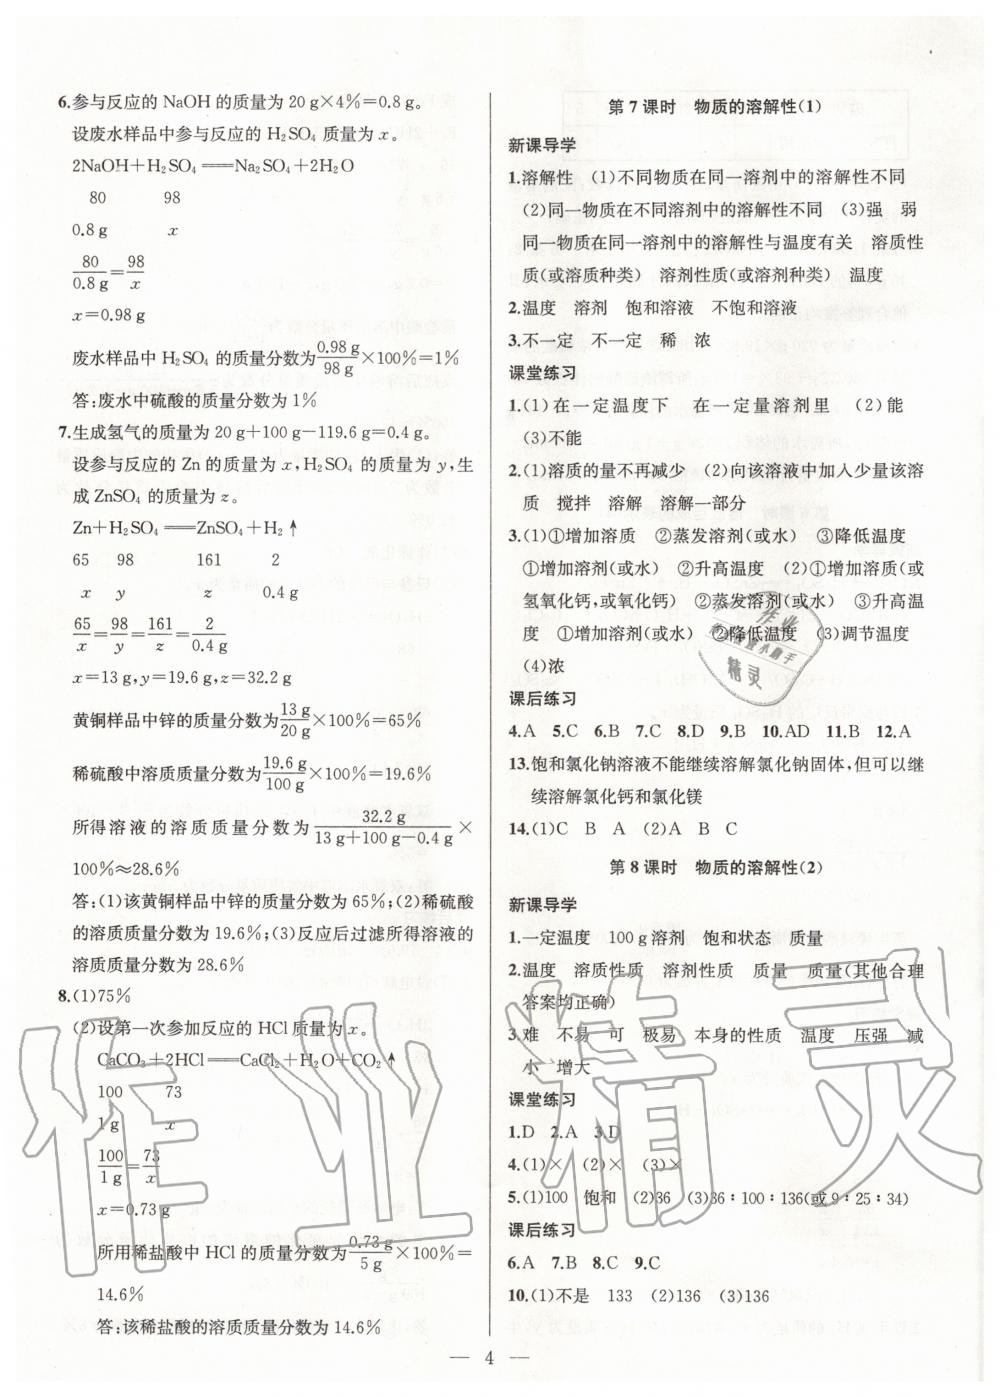 6.参与反应的NaOH的质量为20 g×4%=0.8 g。
设废水样品中参与反应的H₂SO₄质量为x。
2NaOH+H₂SO₄══Na₂SO₄+2H₂O
80 98
0.8 g x
80/0.8 g=98/x
x=0.98 g
废水样品中H₂SO₄的质量分数为0.98 g/98 g×100%=1%
答:废水中硫酸的质量分数为1%
7.生成氢气的质量为20 g+100 g-119.6 g=0.4 g。
设参与反应的Zn的质量为x,H₂SO₄的质量为y,生
成ZnSO₄的质量为z。
Zn+H₂SO₄══ZnSO₄+H₂↑
65 98 161 2
x y z 0.4 g
65/x=98/y=161/z=2/0.4 g
x=13 g,y=19.6 g,z=32.2 g
黄铜样品中锌的质量分数为13 g/20 g×100%=65%
稀硫酸中溶质质量分数为19.6 g/100 g×100%=19.6%
所得溶液的溶质质量分数为32.2 g/13 g+100 g-0.4 g×
100%≈28.6%
答:(1)该黄铜样品中锌的质量分数为65%;(2)稀硫酸
的溶质质量分数为19.6%;(3)反应后过滤所得溶液的
溶质质量分数为28.6%
8.(1)75%
(2)设第一次参加反应的HCl质量为x。
CaCO₃+2HCl══CaCl₂+H₂O+CO₂↑
100 73
1 g x
100/1 g=73/x
x=0.73 g
所用稀盐酸中HCl的质量分数为0.73 g/5 g×100%=
14.6%
答:该稀盐酸的溶质质量分数为14.6%
第7课时 物质的溶解性(1)
新课导学
1.溶解性 (1)不同物质在同一溶剂中的溶解性不同
(2)同一物质在不同溶剂中的溶解性不同 (3)强 弱
同一物质在同一溶剂中的溶解性与温度有关 溶质性
质(或溶质种类) 溶剂性质(或溶剂种类) 温度
2.温度 溶剂 饱和溶液 不饱和溶液
3.不一定 不一定 稀 浓
课堂练习
1.(1)在一定温度下 在一定量溶剂里 (2)能
(3)不能
2.(1)溶质的量不再减少 (2)向该溶液中加入少量该溶
质 搅拌 溶解 溶解一部分
3.(1)①增加溶质 ②蒸发溶剂(或水) ③降低温度
①增加溶剂(或水) ②升高温度 (2)①增加溶质(或
氢氧化钙,或氧化钙) ②蒸发溶剂(或水) ③升高温
度 ①增加溶剂(或水) ②降低温度 (3)调节温度
(4)浓
课后练习
4.A 5.C 6.B 7.C 8.D 9.B 10.AD 11.B 12.A
13.饱和氯化钠溶液不能继续溶解氯化钠固体,但可以继
续溶解氯化钙和氯化镁
14.(1)C B A (2)A B C
第8课时 物质的溶解性(2)
新课导学
1.一定温度 100 g溶剂 饱和状态 质量
2.温度 溶质性质 溶剂性质 质量 质量(其他合理
答案均正确)
3.难 不易 可 极易 本身的性质 温度 压强 减
小 增大
课堂练习
1.D 2.A 3.D
4.(1)× (2)× (3)×
5.(1)100 饱和 (2)36 (3)36∶100∶136(或9∶25∶34)
课后练习
6.A 7.B 8.C 9.C
10.(1)不是 133 (2)136 (3)136
— 4 —
作业精灵